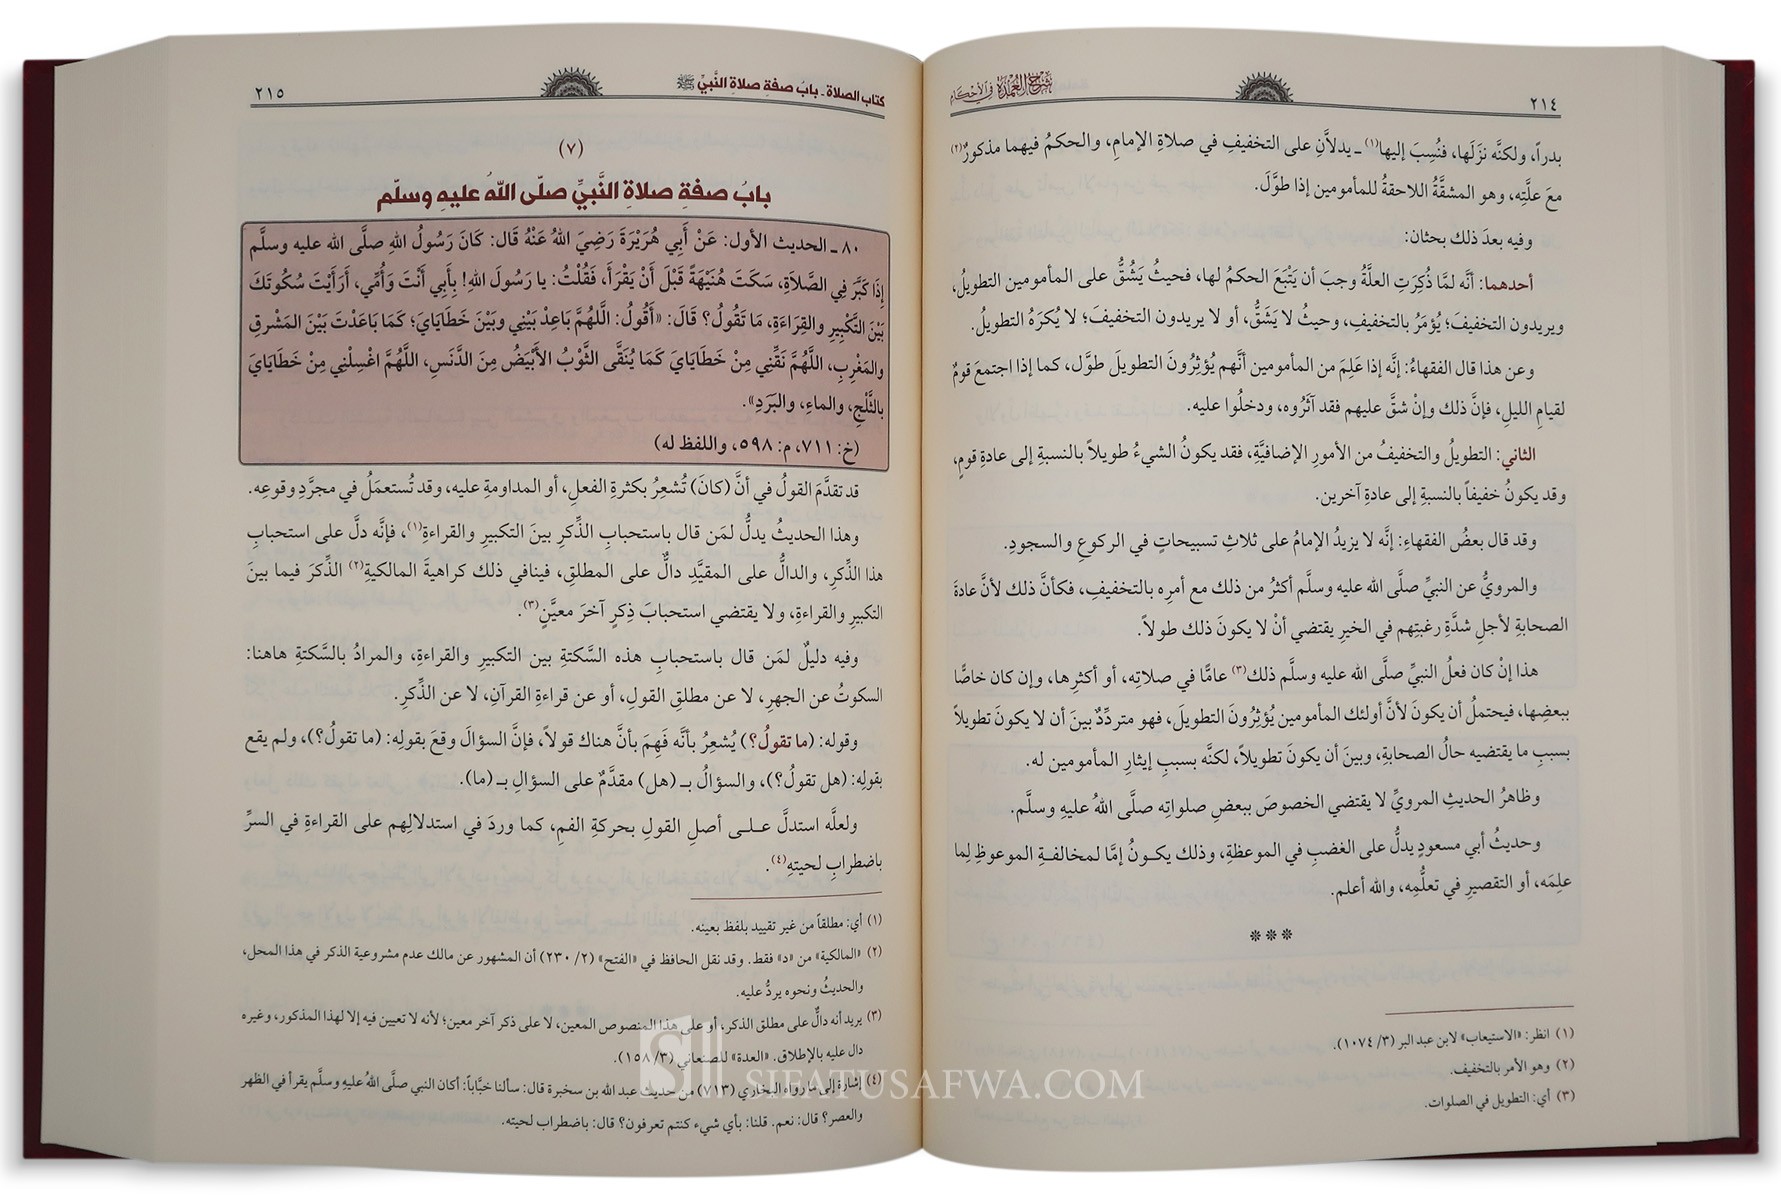 ٢١٤
شرح العمدة في الأحكام
بدراً، ولكنَّه نزَلَها، فنُسِبَ إليها(١) ـ يدلاَّنِ على التخفيفِ في صلاةِ الإمامِ، والحكمُ فيهما مذكورٌ(٢)
معَ علَّتِه، وهو المشقَّةُ اللاحقةُ للمأمومين إذا طوَّلَ.
وفيه بعدَ ذلك بحثان:
أحدهما: أنَّه لمَّا ذُكِرَتِ العلَّةُ وجبَ أن يَتْبَعَ الحكمُ لها، فحيثُ يَشُقُّ على المأمومين التطويلُ،
ويريدون التخفيفَ؛ يُؤمَرُ بالتخفيفِ، وحيثُ لا يَشَقُّ، أو لا يريدون التخفيفَ؛ لا يُكرَهُ التطويلُ.
وعن هذا قال الفقهاءُ: إنَّه إذا عَلِمَ من المأمومين أنَّهم يُؤثِرُونَ التطويلَ طوَّل، كما إذا اجتمعَ قومٌ
لقيامِ الليلِ، فإنَّ ذلك وإنْ شقَّ عليهم فقد آثَرُوه، ودخلُوا عليه.
الثاني: التطويلُ والتخفيفُ من الأمورِ الإضافيَّةِ، فقد يكونُ الشيءُ طويلاً بالنسبةِ إلى عادةِ قومٍ،
وقد يكونُ خفيفاً بالنسبةِ إلى عادةِ آخرين.
وقد قال بعضُ الفقهاءِ: إنَّه لا يزيدُ الإمامُ على ثلاثِ تسبيحاتٍ في الركوعِ والسجودِ.
والمرويُّ عن النبيِّ صلَّى الله عليه وسلَّم أكثرُ من ذلك مع أمرِه بالتخفيفِ، فكأنَّ ذلك لأنَّ عادةَ
الصحابةِ لأجلِ شدَّةِ رغبتِهم في الخيرِ يقتضي أنْ لا يكونَ ذلك طولاً.
هذا إنْ كان فعلُ النبيِّ صلَّى الله عليه وسلَّم ذلك(٣) عامًّا في صلاتِه، أو أكثرِها، وإن كان خاصًّا
ببعضِها، فيحتملُ أن يكونَ لأنَّ أولئك المأمومين يُؤثِرُونَ التطويلَ، فهو متردِّدٌ بينَ أن لا يكونَ تطويلاً
بسببِ ما يقتضيه حالُ الصحابةِ، وبينَ أن يكونَ تطويلاً، لكنَّه بسببِ إيثارِ المأمومين له.
وظاهرُ الحديثِ المرويِّ لا يقتضي الخصوصَ ببعضِ صلواتِه صلَّى اللهُ عليهِ وسلَّم.
وحديثُ أبي مسعودٍ يدلُّ على الغضبِ في الموعظةِ، وذلك يكــونُ إمَّا لمخالفــةِ الموعوظِ لِما
علِمَه، أو التقصيرِ في تعلُّمِه، والله أعلم.
***
(١) انظر: «الاستيعاب» لابن عبد البر (٣/ ١٠٧٤).
(٢) وهو الأمر بالتخفيف.
(٣) أي: التطويل في الصلوات.
كتاب الصلاة ـ باب صفةِ صلاةِ النَّبيِّ ﷺ
٢١٥
(٧)
بابُ صفةِ صلاةِ النَّبيِّ صلّى اللّهُ عليهِ وسلّم
٨٠ ـ الحديث الأول: عَنْ أَبِي هُرَيْرَةَ رَضِيَ اللهُ عَنْهُ قَال: كَانَ رَسُولُ اللهِ صلَّى الله عليه وسلَّم
إِذَا كَبَّرَ فِي الصَّلاَةِ، سَكَتَ هُنَيْهَةً قَبْلَ أَنْ يَقْرَأَ، فَقُلْتُ: يا رَسُولَ اللهِ! بِأَبِي أَنْتَ وَأُمِّي، أَرَأَيْتَ سُكُوتَكَ
بَيْنَ التَّكْبِيرِ والقِرَاءَةِ، مَا تَقُولُ؟ قَالَ: «أَقُولُ: اللَّهُمَّ بَاعِدْ بَيْنِي وبَيْنَ خَطَايَايَ؛ كَمَا بَاعَدْتَ بَيْنَ المَشْرِقِ
والمَغْرِبِ، اللَّهُمَّ نَقِّنِي مِنْ خَطَايَايَ كَمَا يُنَقَّى الثَّوْبُ الأَبْيَضُ مِنَ الدَّنَسِ، اللَّهُمَّ اغْسِلْنِي مِنْ خَطَايَايَ
بالثَّلْجِ، والماءِ، والبَرَدِ».
(خ: ٧١١، م: ٥٩٨، واللفظ له)
قد تقدَّمَ القولُ في أنَّ (كانَ) تُشعِرُ بكثرةِ الفعلِ، أو المداومةِ عليه، وقد تُستعمَلُ في مجرَّدِ وقوعِه.
وهذا الحديثُ يدلُّ لمَن قال باستحبابِ الذِّكرِ بينَ التكبيرِ والقراءةِ(١)، فإنَّه دلَّ على استحبابِ
هذا الذِّكرِ، والدالُّ على المقيَّدِ دالٌّ على المطلقِ، فينافي ذلك كراهيةَ المالكيةِ(٢) الذِّكرَ فيما بينَ
التكبيرِ والقراءةِ، ولا يقتضي استحبابَ ذِكرٍ آخرَ معيَّنٍ(٣).
وفيه دليلٌ لمَن قال باستحبابِ هذه السَّكتةِ بين التكبيرِ والقراءةِ، والمرادُ بالسَّكتةِ هاهنا:
السكوتُ عن الجهرِ، لا عن مطلقِ القولِ، أو عن قراءةِ القرآنِ، لا عن الذِّكرِ.
وقوله: (ما تقولُ؟) يُشعِرُ بأنَّه فَهِمَ بأنَّ هناك قولاً، فإنَّ السؤالَ وقعَ بقولِه: (ما تقولُ؟)، ولم يقع
بقولِه: (هل تقولُ؟)، والسؤالُ بــ (هل) مقدَّمٌ على السؤالِ بــ (ما).
ولعلَّه استدلَّ عــلــى أصلِ القولِ بحركةِ الفمِ، كما وردَ في استدلالِهم على القراءةِ في السرِّ
باضطرابِ لحيتِهِ(٤).
(١) أي: مطلقاً من غير تقييد بلفظ بعينه.
(٢) «المالكية» من «د» فقط. وقد نقل الحافظ في «الفتح» (٢/ ٢٣٠) أن المشهور عن مالك عدم مشروعية الذكر في هذا المحل،
والحديثُ ونحوه يردُّ عليه.
(٣) يريد أنه دالٌّ على مطلق الذكر، أو على هذا المنصوص المعين، لا على ذكر آخر معين؛ لأنه لا تعيين فيه إلا لهذا المذكور، وغيره
دال عليه بالإطلاق. «العدة» للصنعاني (٣/ ١٥٨).
(٤) إشارة إلى ما رواه البخاري (٧١٣) من حديث عبد الله بن سخبرة قال: سألنا خبَّاباً: أكان النبي صلَّى اللهُ عليهِ وسلَّم يقرأ في الظهر
والعصر؟ قال: نعم. قلنا: بأي شيء كنتم تعرفون؟ قال: باضطراب لحيته.
SIFATUSAFWA.COM